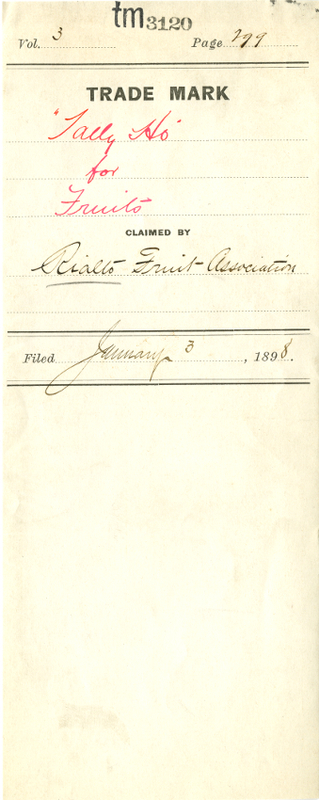 tm3120
Vol. 3 Page 299
TRADE MARK
"Tally Ho"
for
Fruits
CLAIMED BY
Rialto Fruit Association
Filed January 3, 1898.